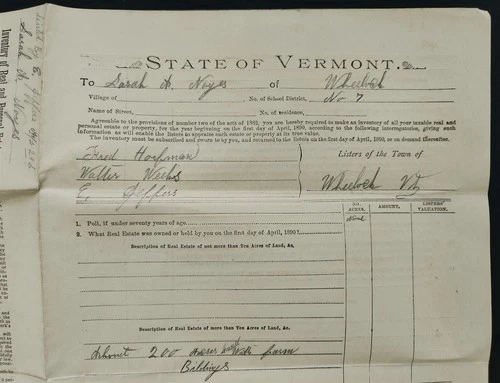 STATE OF VERMONT.
To Sarah A. Noyes of Wheelock
Village of No. of School District, No 7
Name of Street, No. of residence,
Agreeable to the provisions of number two of the acts of 1882, you are hereby required to make an inventory of all your taxable real and
personal estate or property, for the year beginning on the first day of April, 1890, according to the following interrogatories, giving such
information as will enable the listers to appraise such estate or property at its true value.
The inventory must be subscribed and sworn to by you, and returned to the listers on the first day of April, 1890, or on demand thereafter.
Fred Hoffman Listers of the Town of
Walter Weeks
E. Jeffers Wheelock Vt.
NO. ACRES. AMOUNT. LISTERS' VALUATION.
1. Poll, if under seventy years of age
2. What Real Estate was owned or held by you on the first day of April, 1890?
Description of Real Estate of not more than Ten Acres of Land, &c.
Description of Real Estate of more than Ten Acres of Land, &c.
About 200 Acres with farm
Bildings
Inventory of Real and Personal
Sarah A. Noyes